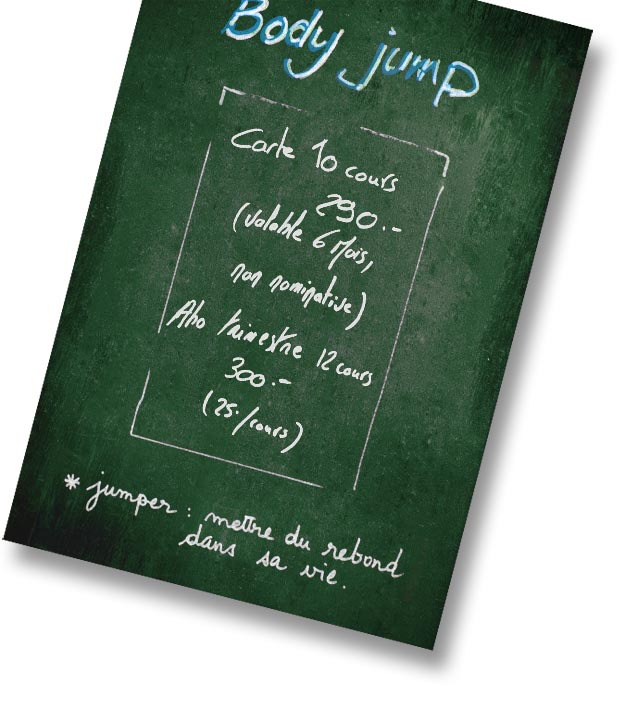 Body jump
Carte 10 cours
290.-
(valable 6 Mois,
non nominative)
Abo trimestre 12 cours
300.-
(25.-/cours)
* jumper : mettre du rebond
dans sa vie.